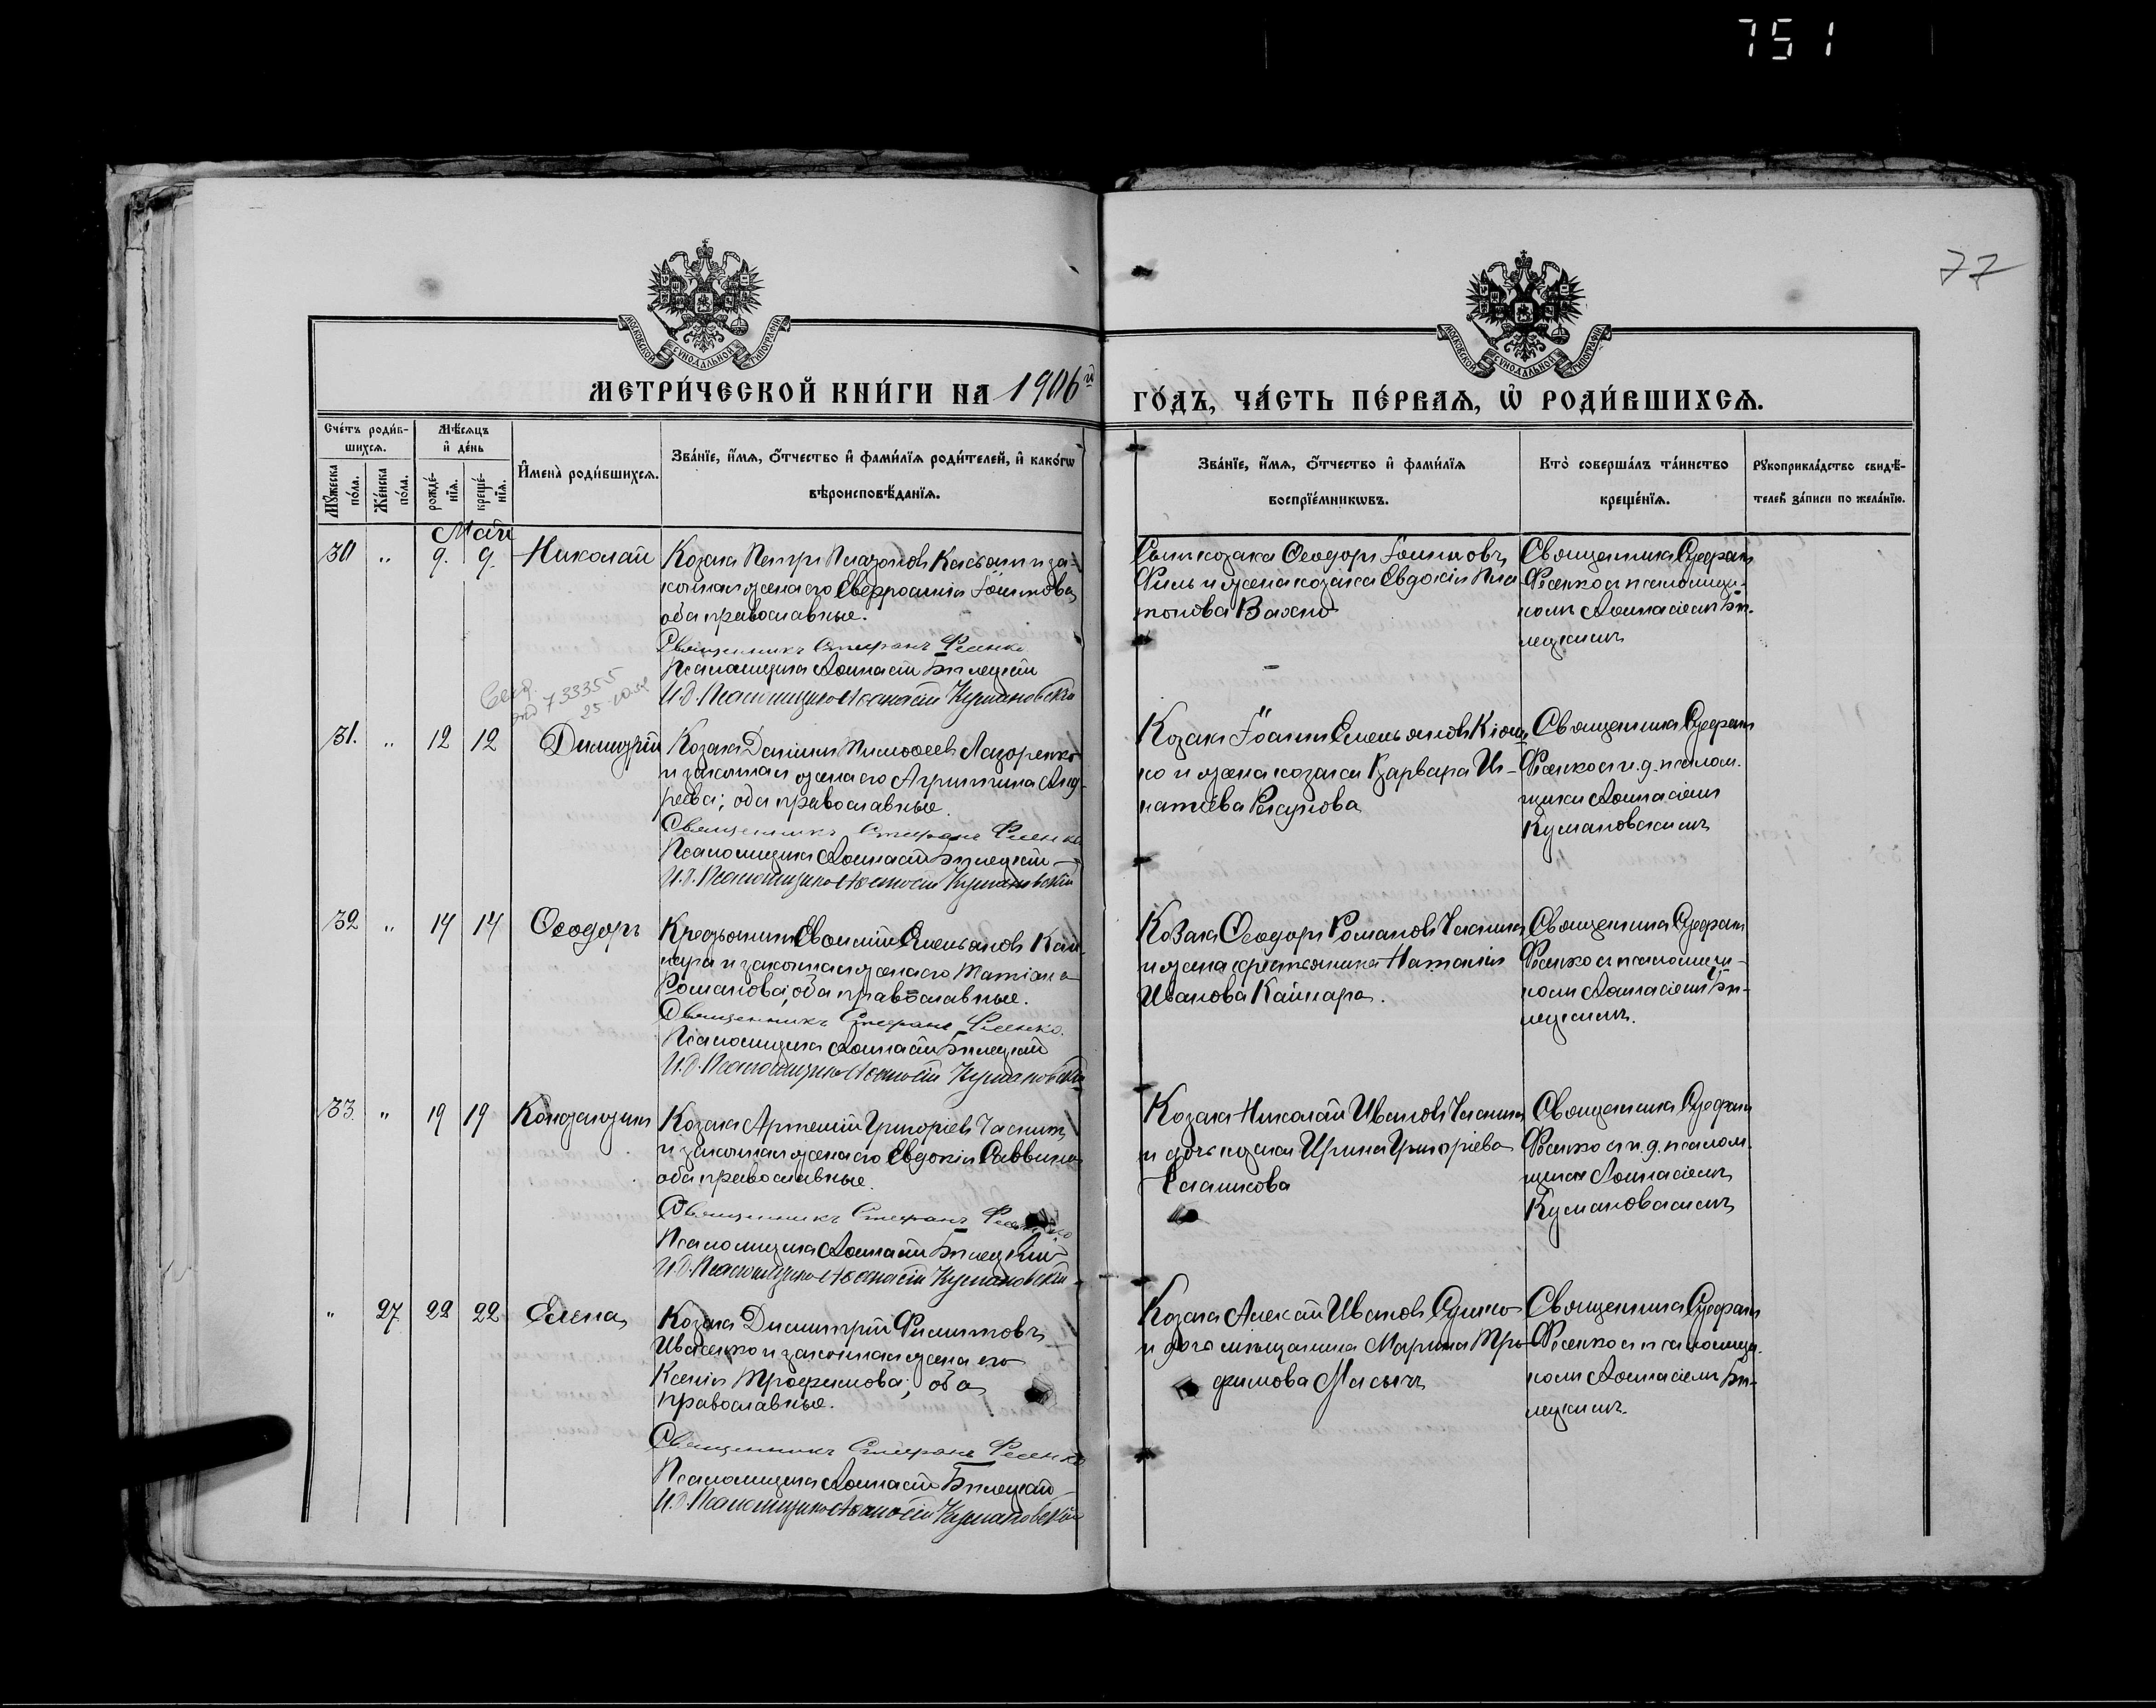 751
77
МОСКОВСКОЙ СѴНОДАЛЬНОЙ ТИПОГРАФІИ
МОСКОВСКОЙ СѴНОДАЛЬНОЙ ТИПОГРАФІИ
МЕТРИ́ЧЕСКОЙ КНИ́ГИ НА 1906 й
ГО́ДЪ, ЧА́СТЬ ПЕ́РВАѦ, Ѡ҆ РОДИ́ВШИХСѦ.
Сче́тъ роди́в-
шихсѧ.
Мꙋ́жеска по́ла.
Же́нска по́ла.
Мѣ́сѧцъ
и҆ де́нь
рожде́-
нїѧ.
креще́-
нїѧ.
И҆мена̀ роди́вшихсѧ.
Зва́нїе, и҆́мѧ, ѻ҆́тчество и҆ фами́лїѧ роди́телей, и҆ како́гѡ
вѣроисповѣ́данїѧ.
Зва́нїе, и҆́мѧ, ѻ҆́тчество и҆ фами́лїѧ
воспрїе́мникѡвъ.
Кто̀ соверша́лъ та́инство
креще́нїѧ.
Рꙋкоприкла́дство свидѣ́-
телей за́писи по жела́нїю.
Май
30 " 9. 9. Николай
Козакъ Петръ Платоновъ Касьянъ и за-
конная жена его Евфросинія Іоаннова,
оба православные.
Священникъ Стефанъ Фесенко
Псаломщикъ Аѳанасій Билецкій
И.д. Псаломщика Аѳанасій Кумановскій
Сынъ козака Ѳеодоръ Іоанновъ
и жена козака Евдокія Пла-
тонова Вахно
Священникъ Стефанъ
Фесенко съ псаломщи-
комъ Аѳанасіемъ Би-
лецкимъ
733355
31. " 12 12 Димитрій
Козакъ Даніилъ Тимоѳеевъ Лазоренко
и законная жена его Агриппина Анд-
реева; оба православные.
Священникъ Стефанъ Фесенко
Псаломщикъ Аѳанасій Билецкій
И.д. Псаломщика Аѳанасій Кумановскій
Козакъ Іоаннъ Емельяновъ
ко и жена козака Варвара Иг-
натіева
Священникъ Стефанъ
Фесенко съ и.д. псалом-
щика Аѳанасіемъ
Кумановскимъ
32 " 14 14 Ѳеодоръ
Крестьянинъ Евѳимій Емельяновъ Кай-
и законная жена его Татіана
Романова; оба православные.
Священникъ Стефанъ Фесенко.
Псаломщикъ Аѳанасій Билецкій
И.д. Псаломщика Аѳанасій Кумановскій
Козакъ Ѳеодоръ Романовъ
и жена крестьянина Наталія
Иванова
Священникъ Стефанъ
Фесенко съ псаломщи-
комъ Аѳанасіемъ Би-
лецкимъ.
33 " 19 19
Козакъ Артемій Григоріевъ
и законная жена его Евдокія Саввина
оба православные.
Священникъ Стефанъ Фесенко
Псаломщикъ Аѳанасій Билецкій
И.д. Псаломщика Аѳанасій Кумановскій
Козакъ Николай Ивановъ
и дочь козака Ирина Григоріева
Священникъ Стефанъ
Фесенко съ и.д. псалом-
щика Аѳанасіемъ
Кумановскимъ
" 27 22 22 Елена
Козакъ Димитрій Филипповъ
Иваненко и законная жена его
Ксенія Трофимова; оба
православные.
Священникъ Стефанъ Фесенко
Псаломщикъ Аѳанасій Билецкій
И.д. Псаломщика Аѳанасій Кумановскій
Козакъ Алексѣй Ивановъ
и дочь мѣщанина Марина Тро-
фимова
Священникъ Стефанъ
Фесенко съ псаломщи-
комъ Аѳанасіемъ Би-
лецкимъ.